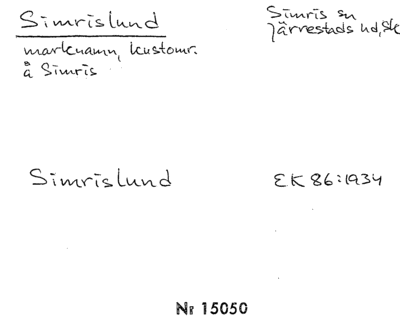 Simrislund
Simris sn
Järrestads hd, Sk
marknamn, kustomr.
å Simris
Simrislund
EK 86:1934
Nr 15050